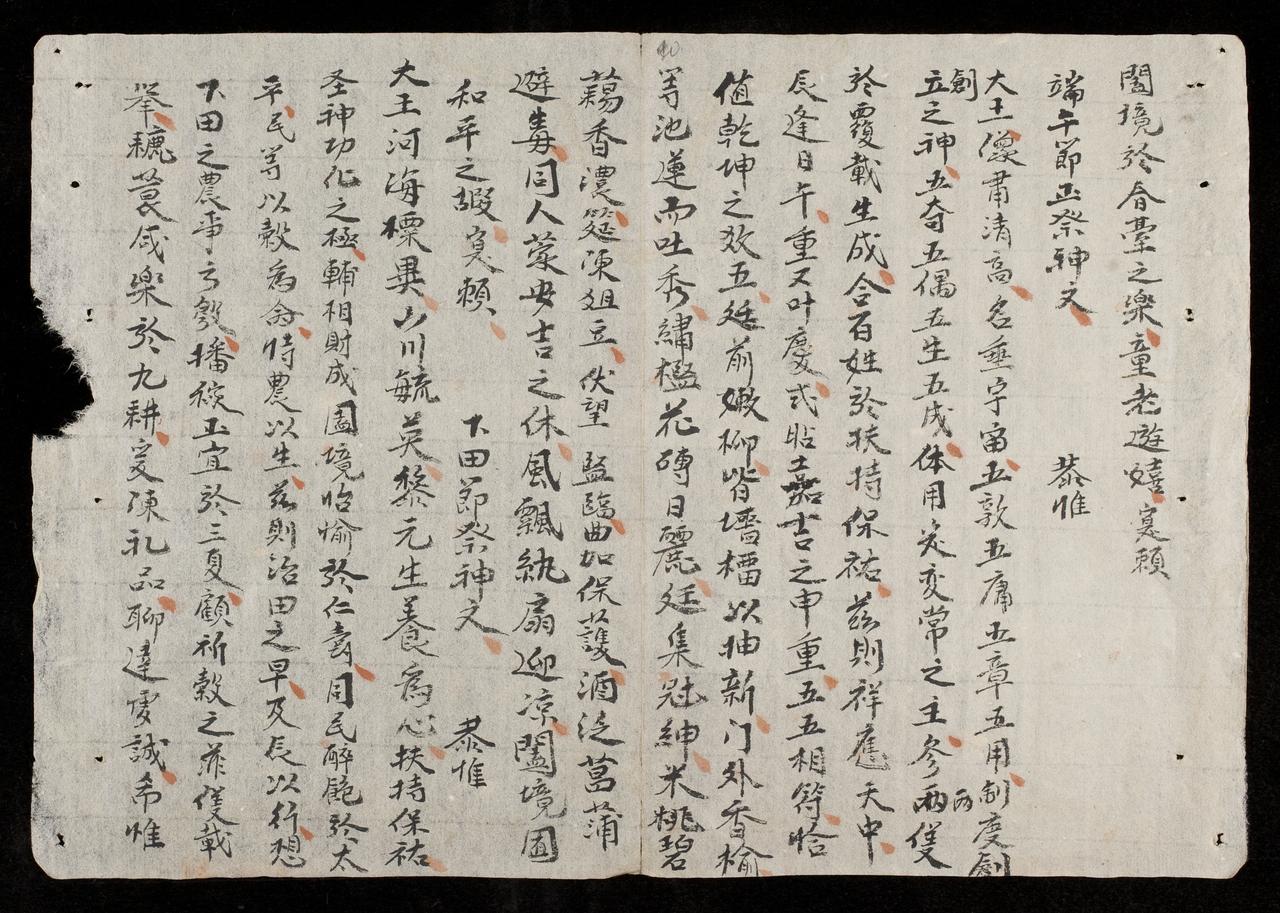 闔境於春臺之樂童老遊嬉寔賴
端午節正祭神文 恭惟
大王僚肅清高名垂宇宙五敦五庸五章五用制度創
創立之神五奇五偶五生五成体用定变常之主参兩隻
於覆載生成合百姓於扶持保祐茲則祥應天中
辰逢日午重又叶慶式昭嘉吉之申重五五相符恰
值乾坤之效五廷前嫩柳皆墙櫺以抽新门外香榆
等池蓮而吐秀繡檻花磚日麗廷集冠紳米粃碧
蒻香濃筵陳俎立伏望 監臨曲加保護酒泛菖蒲
避毒同人蒙安吉之休風飄紈扇迎凉闔境囿
和平之嘏寔賴 下田節祭神文 恭惟
大王河海標異山川毓英黎元生養為心扶持保祐
圣神功化之極輔相財成固境怡愉於仁壽同民醉飽於太
平民等以穀為命恃農以生茲則治田之早及長以行想
下田之農事方殷播種正宜於三夏顧祈穀之筵僅載
举穮蓘咸樂於九耕爰陳礼品聊達虔誠希惟